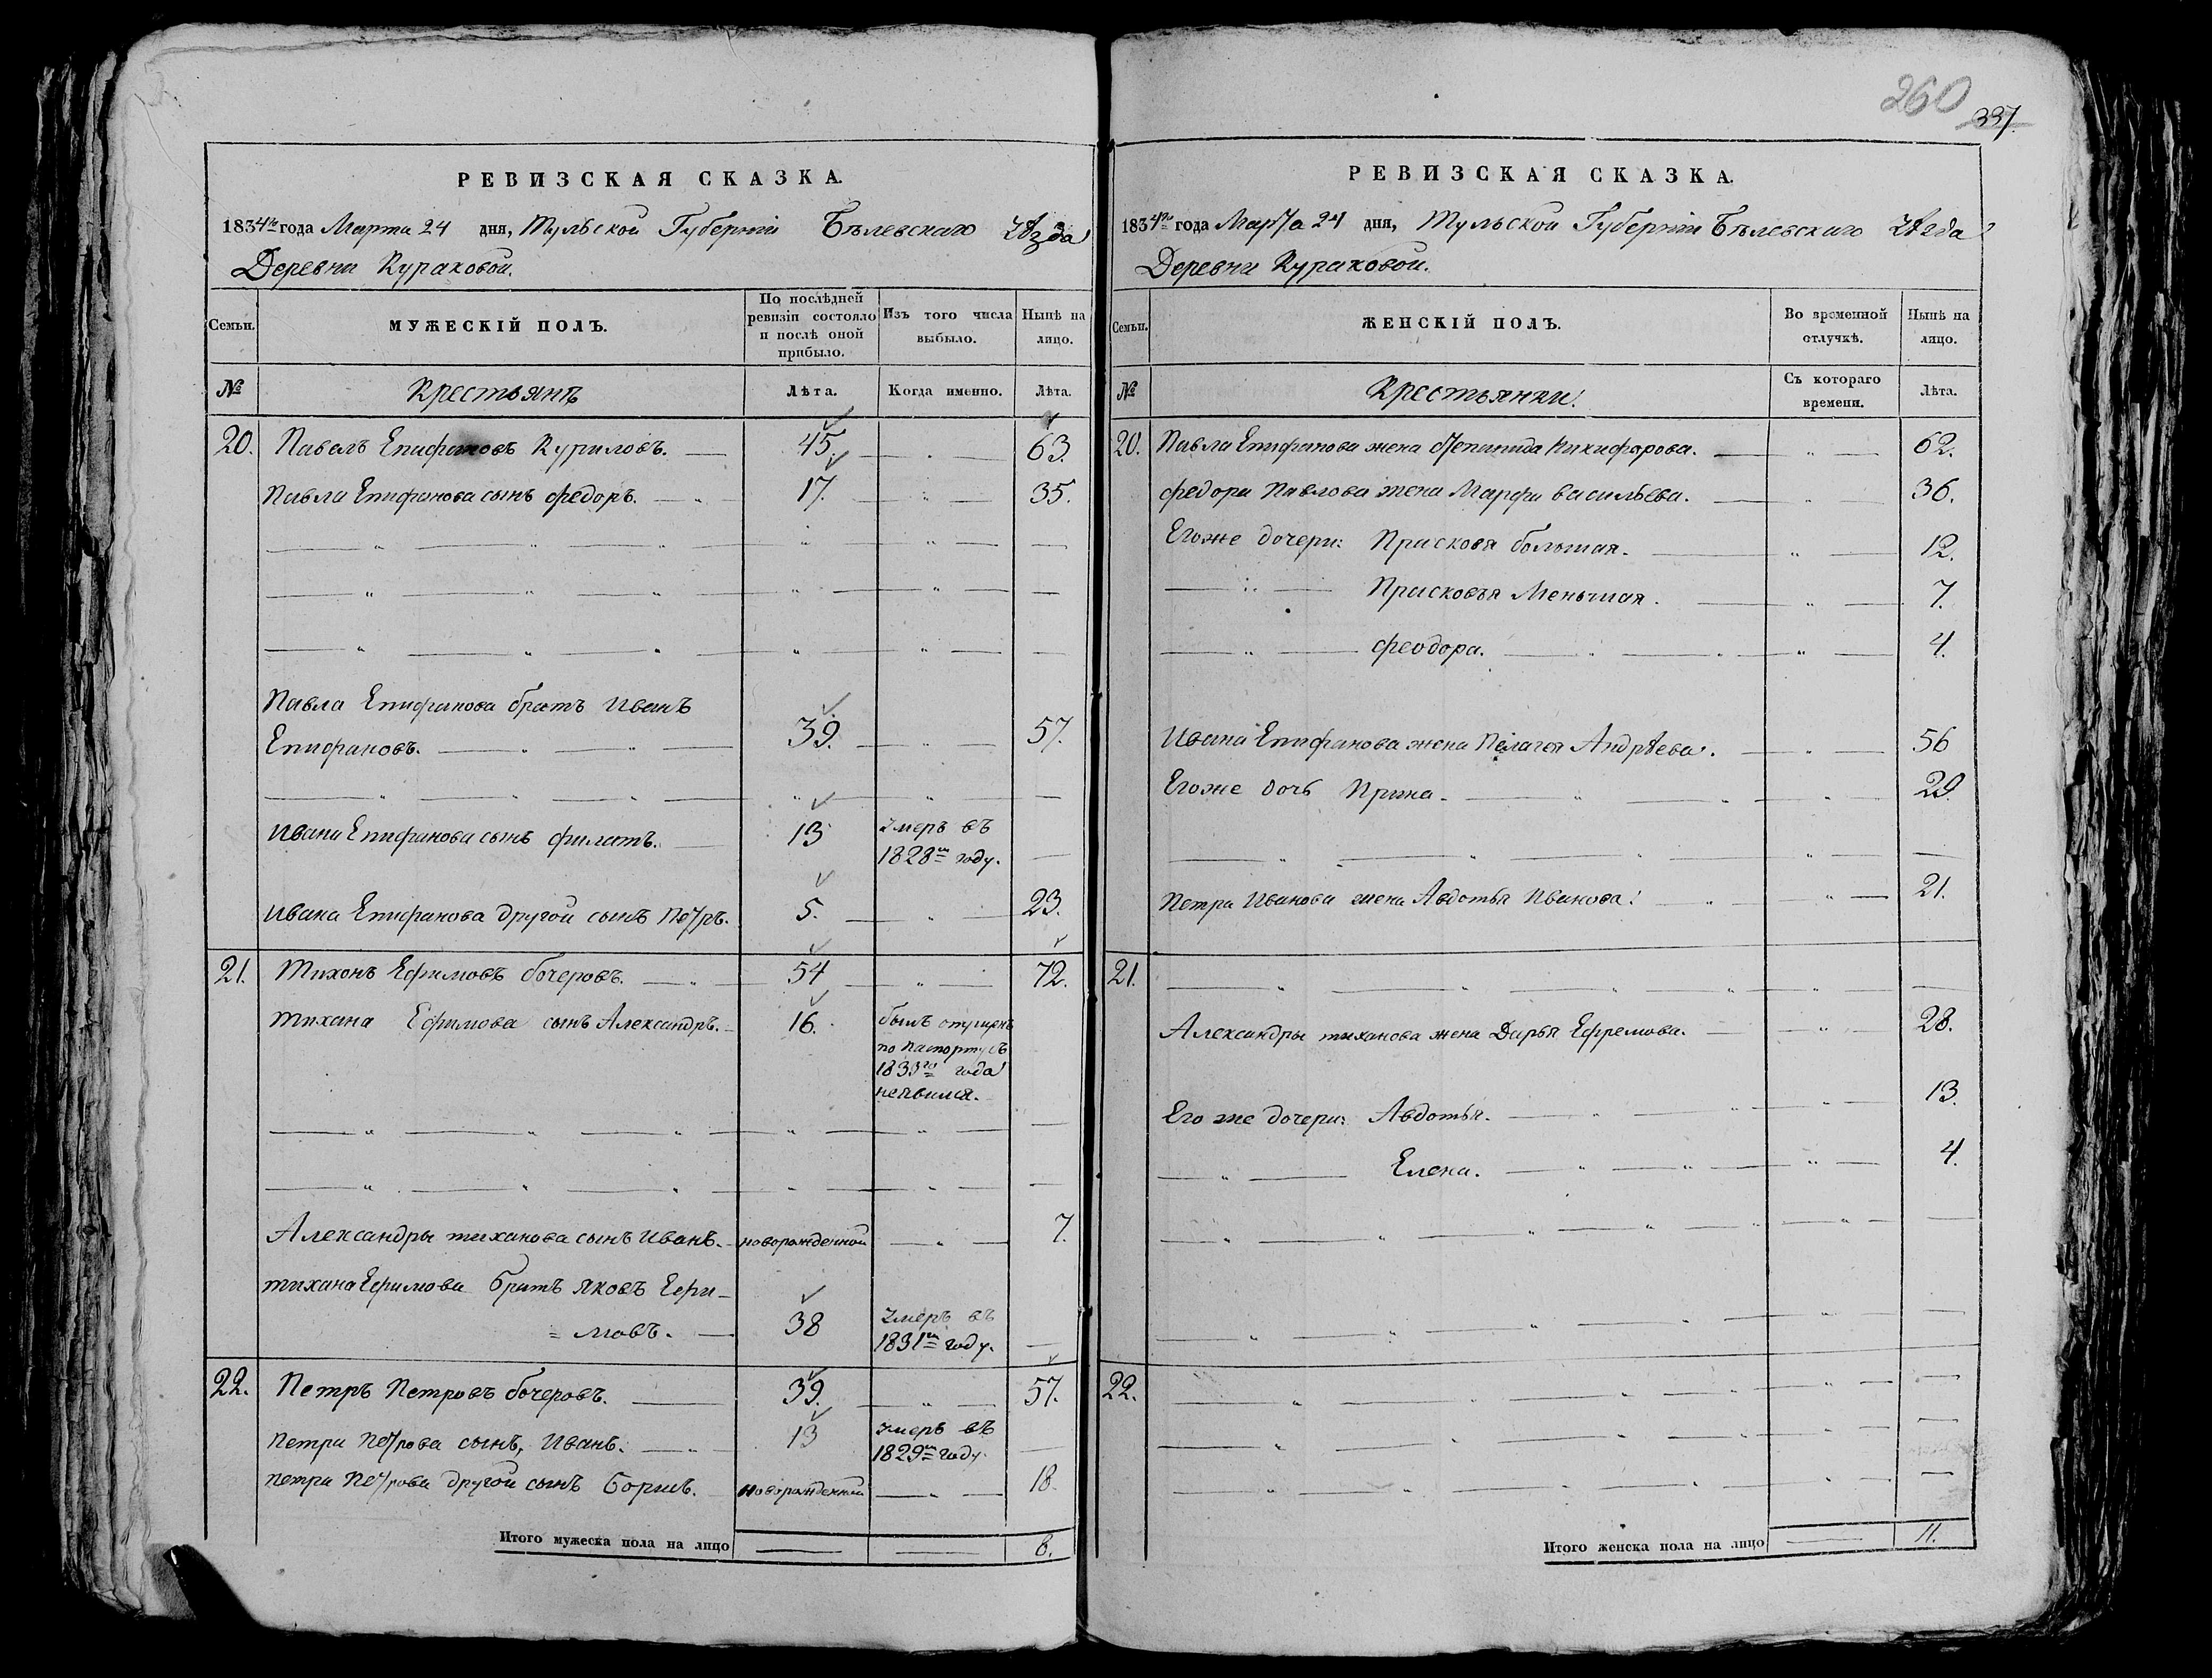 260
337.
РЕВИЗСКАЯ СКАЗКА.
1834го года Марта 24 дня, Тульской Губерніи Бѣлевскаго Уѣзда
Деревни Кураковой.
Семьи.
МУЖЕСКІЙ ПОЛЪ.
По послѣдней ревизіи состояло и послѣ оной прибыло.
Изъ того числа выбыло.
Нынѣ на лицо.
№ Крестьянъ Лѣта. Когда именно. Лѣта.
20. Павелъ Епифановъ Куриловъ. 45. 63.
Павла Епифанова сынъ Федоръ. 17. 35.
Павла Епифанова братъ Иванъ
Епифановъ. 39. 57.
Ивана Епифанова сынъ Филатъ. 13 Умеръ въ
1828м году.
Ивана Епифанова другой сынъ Петръ. 5. 23.
21. Тихонъ Ефимовъ Бочеровъ. 54 72.
Тихана Ефимова сынъ Александръ. 16. былъ отпущенъ
по паспорту съ
года
неявился.
Александры Тиханова сынъ Иванъ. новорожденной 7.
Тихана Ефимова братъ Яковъ Ефи-
=мовъ. 38 Умеръ въ
1831м году.
22. Петръ Петровъ Бочеровъ. 39. 57.
Петра Петрова сынъ, Иванъ. 13 Умеръ въ
1829м году.
Петра Петрова другой сынъ Борисъ. новорожденной 18.
Итого мужеска пола на лицо 8.
РЕВИЗСКАЯ СКАЗКА.
1834го года Марта 24 дня, Тульской Губерніи Бѣлевскаго Уѣзда
Деревни Кураковой.
Семьи.
ЖЕНСКІЙ ПОЛЪ.
Во временной отлучкѣ.
Нынѣ на лицо.
№ Крестьянки. Съ котораго времени. Лѣта.
20. Павла Епифанова жена Степанида Никифорова. 62.
Федора Павлова жена Марфа Васильева. 36.
Егоже дочери: Прасковя большая. 12.
Прасковья Меньшая. 7.
Феодора. 4.
Ивана Епифанова жена Пелагея Андрѣева. 56
Егоже дочь Ирина. 29.
Петра Иванова жена Авдотья Иванова. 21.
21.
Александры Тиханова жена Дарья Ефремова. 28.
Его же дочери: Авдотья. 13.
Елена. 4.
22.
Итого женска пола на лицо 11.